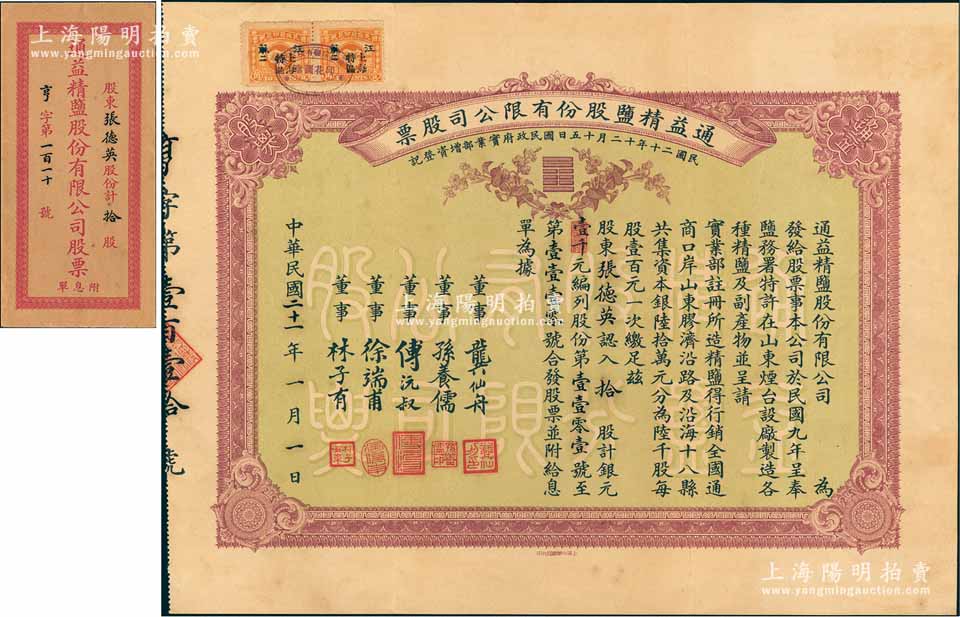 上海陽明拍賣
www.yangmingauction.com
通益精鹽股份有限公司股票
股東張德英股份計拾股
亨字第一百一十號
附息單
通益精鹽股份有限公司股票
民國二十年十二月十五日國民政府實業部增資登記
通益精鹽股份有限公司 為
發給股票事本公司於民國九年呈奉
鹽務署特許在山東煙台設廠製造各
種精鹽及副產物並呈請
實業部註冊所造精鹽得行銷全國通
商口岸山東膠濟沿路及沿海十八縣
共集資本銀陸拾萬元分為陸千股每
股壹百元一次繳足茲
股東張德英認入 拾 股計銀元
壹千元編列股份第壹壹零壹號至
第壹壹壹零號合發股票並附給息
單為據
董事 龔仙舟
董事 孫養儒
董事 傅沅叔
董事 徐端甫
董事 林子有
中華民國二十一年一月一日
字第壹百壹拾號
上海陽明拍賣
www.yangmingauction.com
上海陽明拍賣
www.yangmingauction.com